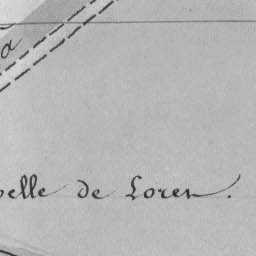 à
pelle de Loren.